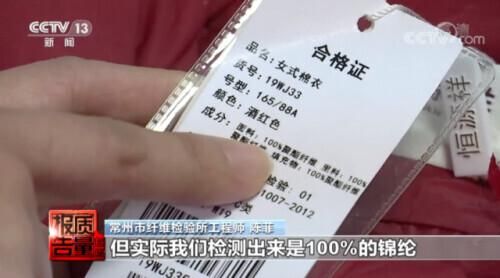 CCTV 13
新闻
CCTV 湾
.com
合格证
品名：女式棉衣
货号：19WJ33
号型：165/88A
颜色：酒红色
成分：面料：100%聚酯纤维 里料：100%
聚酯纤维 填充物：100%
聚酯纤维
检验：01
C类
1007-2012
恒源祥
质量报告
常州市纤维检验所工程师 陈菲
但实际我们检测出来是100%的锦纶
19WJ33